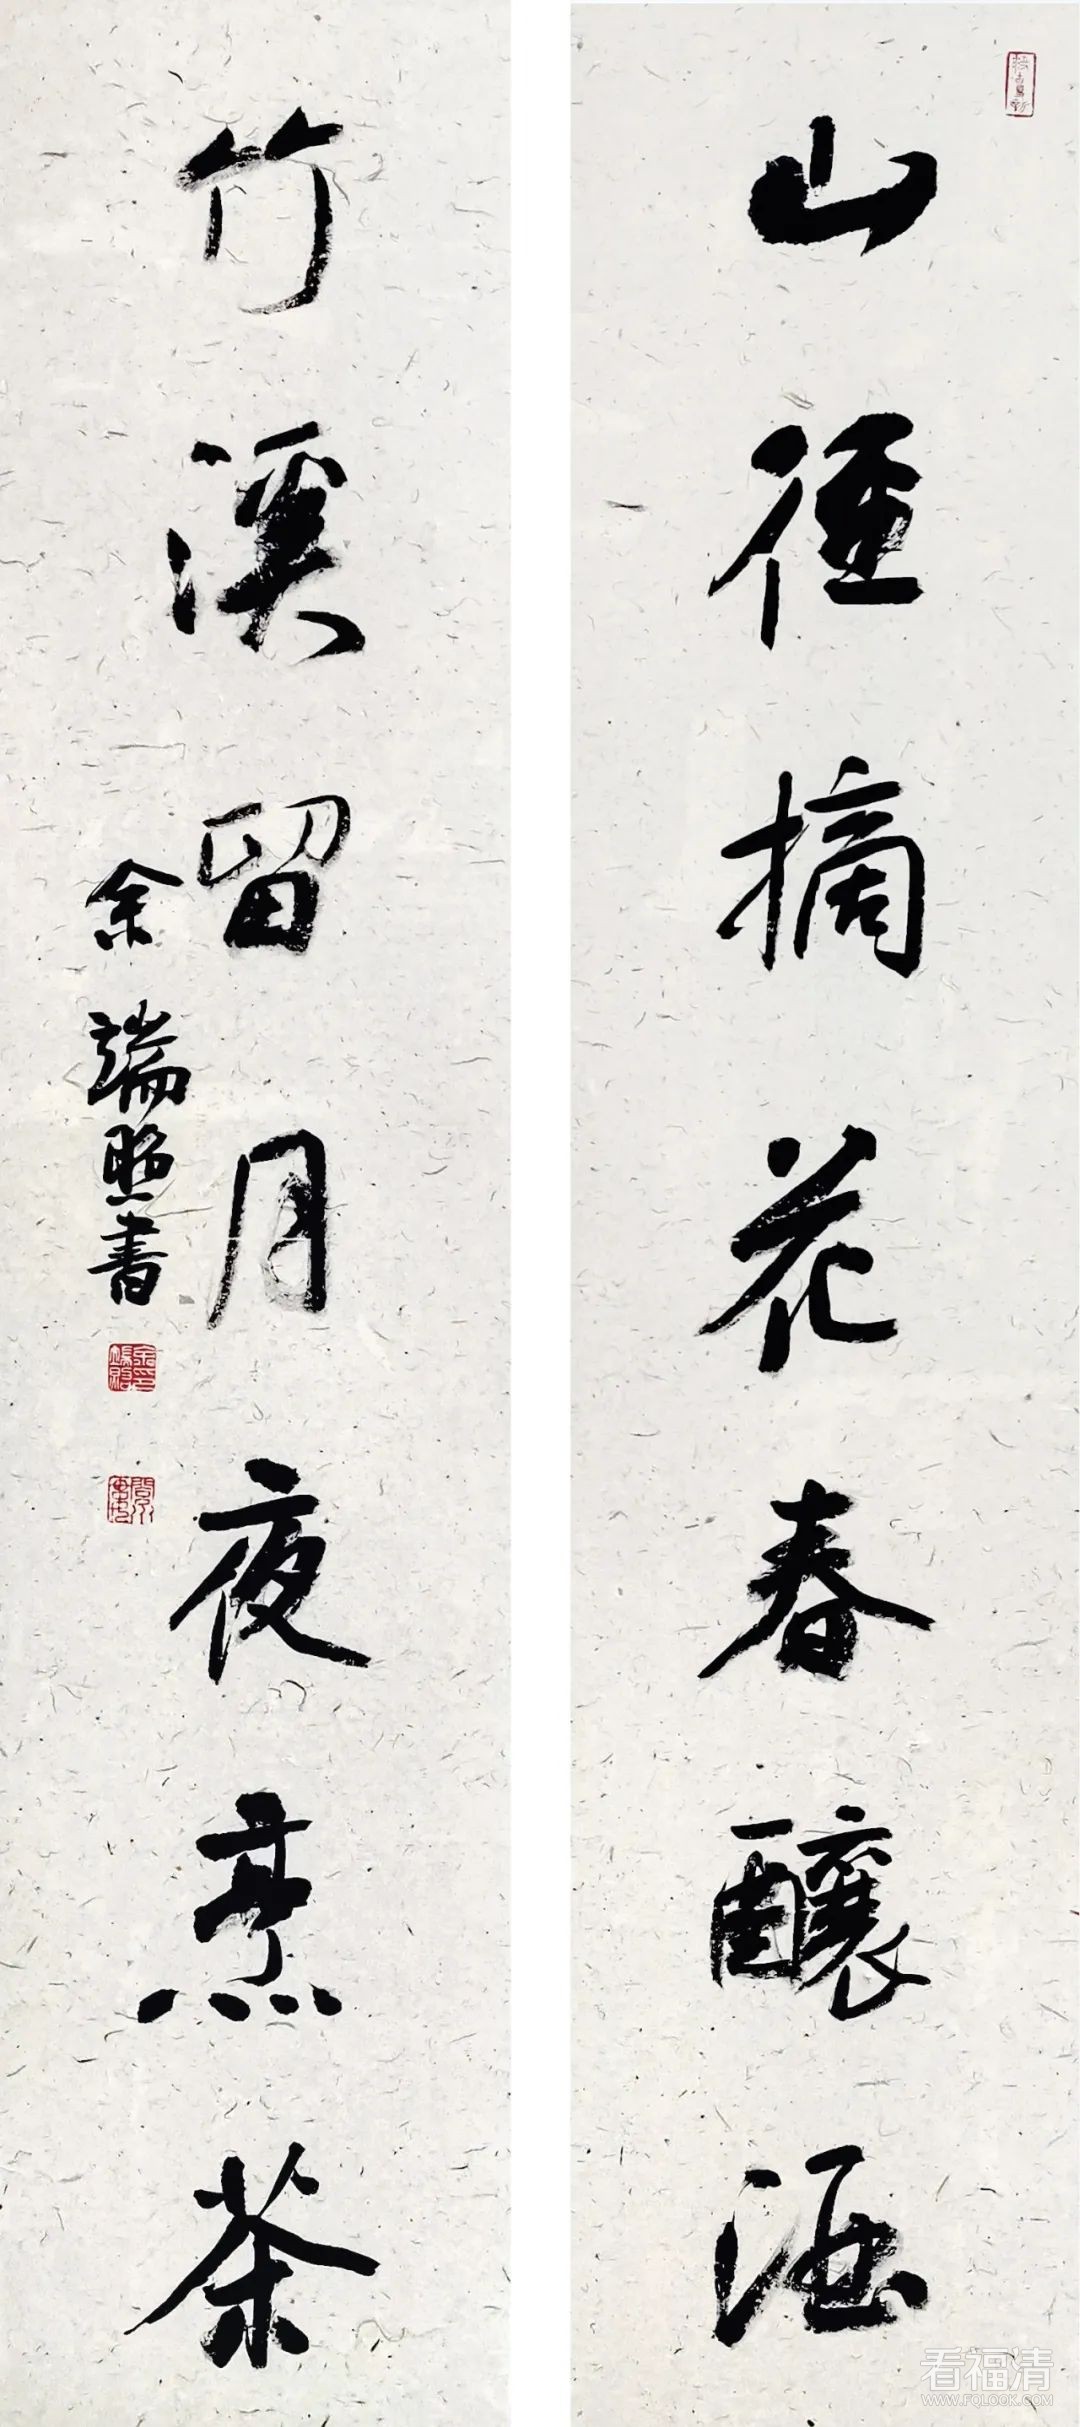 山徑摘花春釀酒
竹溪留月夜烹茶
余端照書
看福清
WWW.FQLOOK.COM